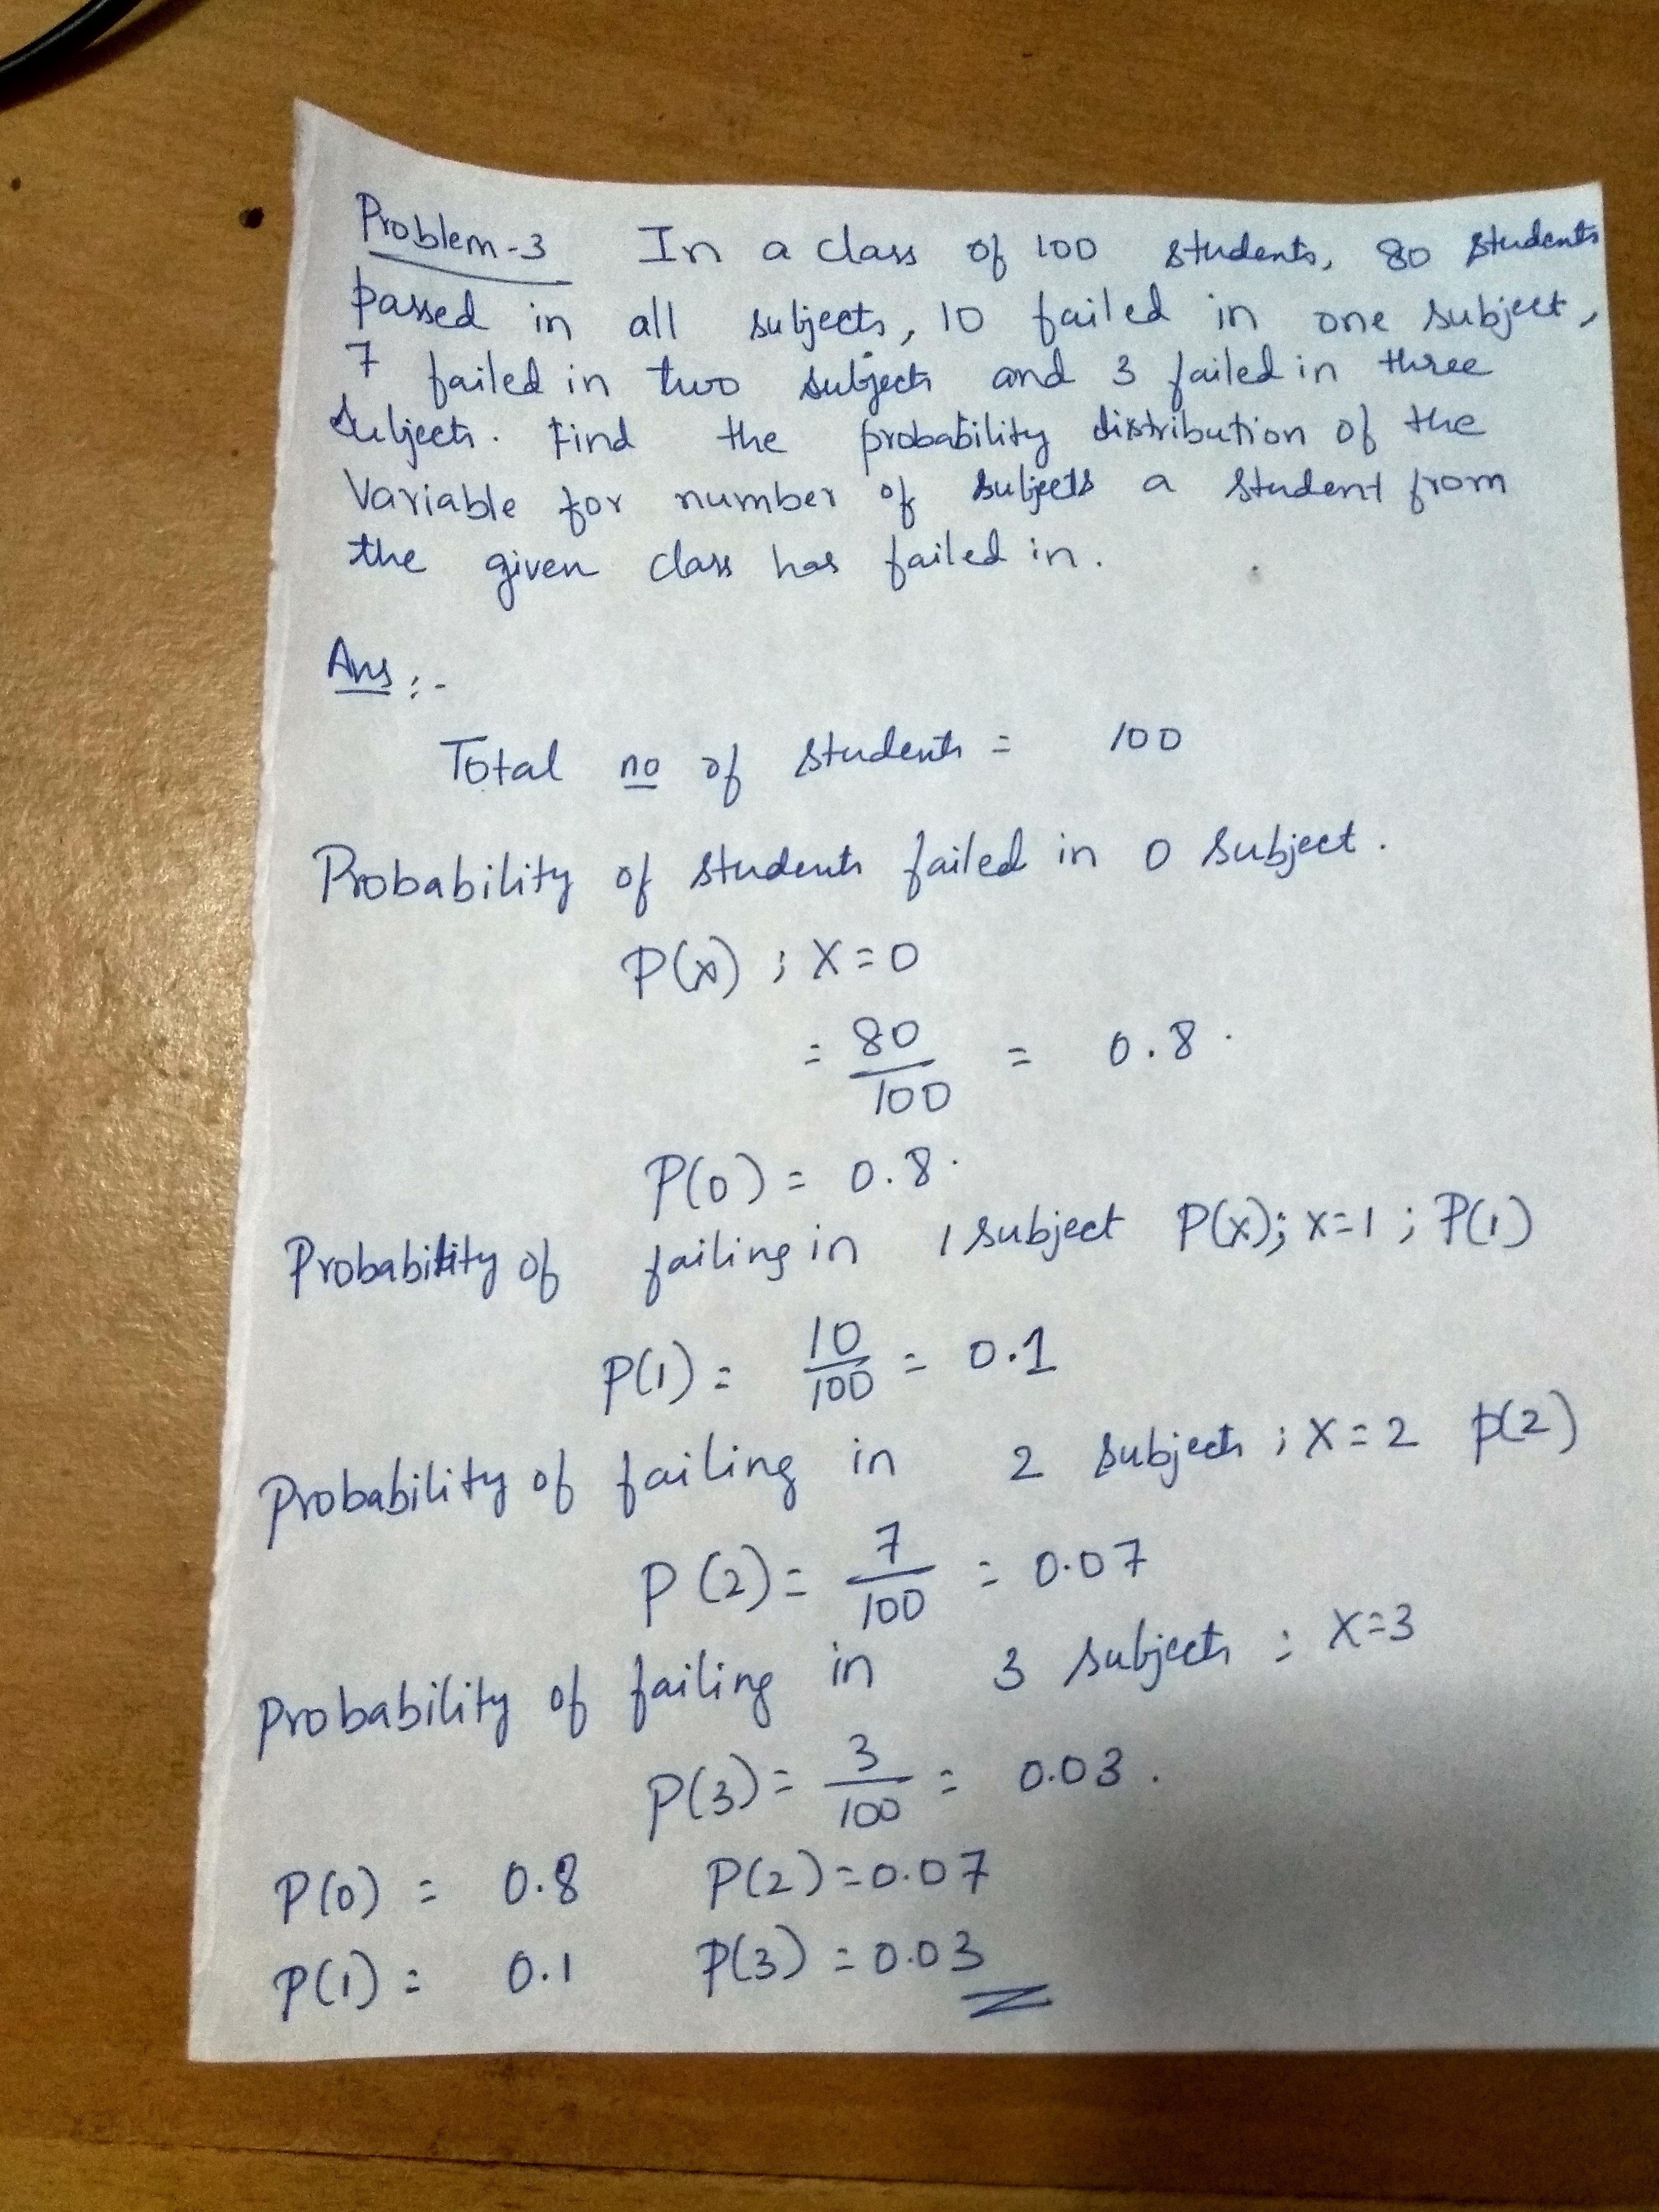 Problem-3 In a class of 100 students, 80 students
passed in all subjects, 10 failed in one subject,
7 failed in two subjects and 3 failed in three
subjects. Find the probability distribution of the
Variable for number of subjects a student from
the given class has failed in.
Ans :-
Total no of students = 100
Probability of students failed in 0 subject.
P(x) ; X=0
= 80/100 = 0.8.
P(0) = 0.8.
Probability of failing in 1 subject P(x); x=1 ; P(1)
P(1) = 10/100 = 0.1
Probability of failing in 2 subjects ; X=2 p(2)
P(2) = 7/100 = 0.07
Probability of failing in 3 subjects : X=3
P(3) = 3/100 = 0.03.
P(0) = 0.8 P(2)=0.07
P(1) = 0.1 P(3)=0.03